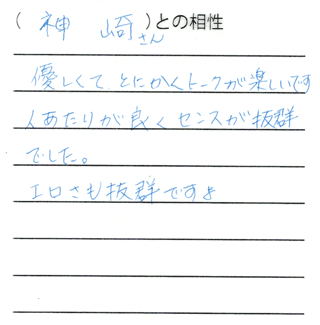 ( 神崎さん )との相性
優しくて、とにかくトークが楽しいです
人あたりが良くセンスが抜群
でした。
エロさも抜群ですよ